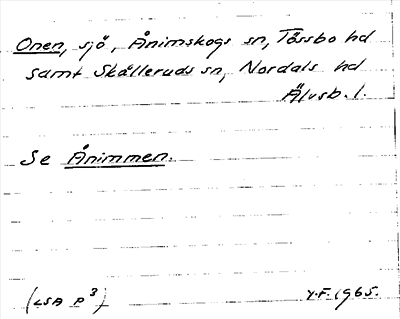 Onen, sjö, Ånimskogs sn, Tössbo hd
samt Skålleruds sn, Nordals hd
Älvsb. l.
Se Ånimmen.
(LSA P 3)
Y.F. 1965.